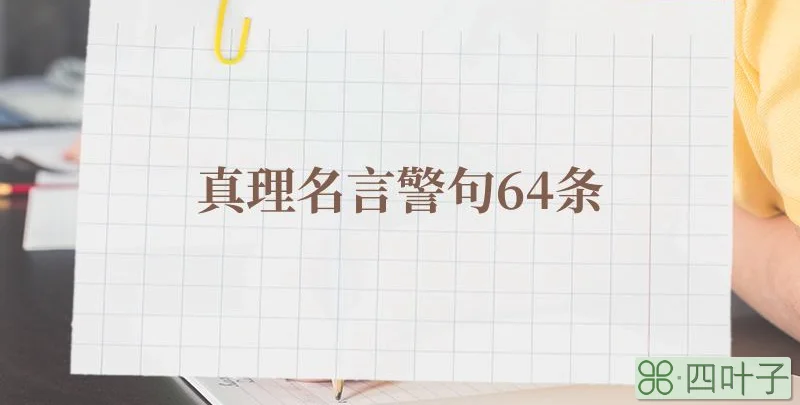 真理名言警句64条
四叶子